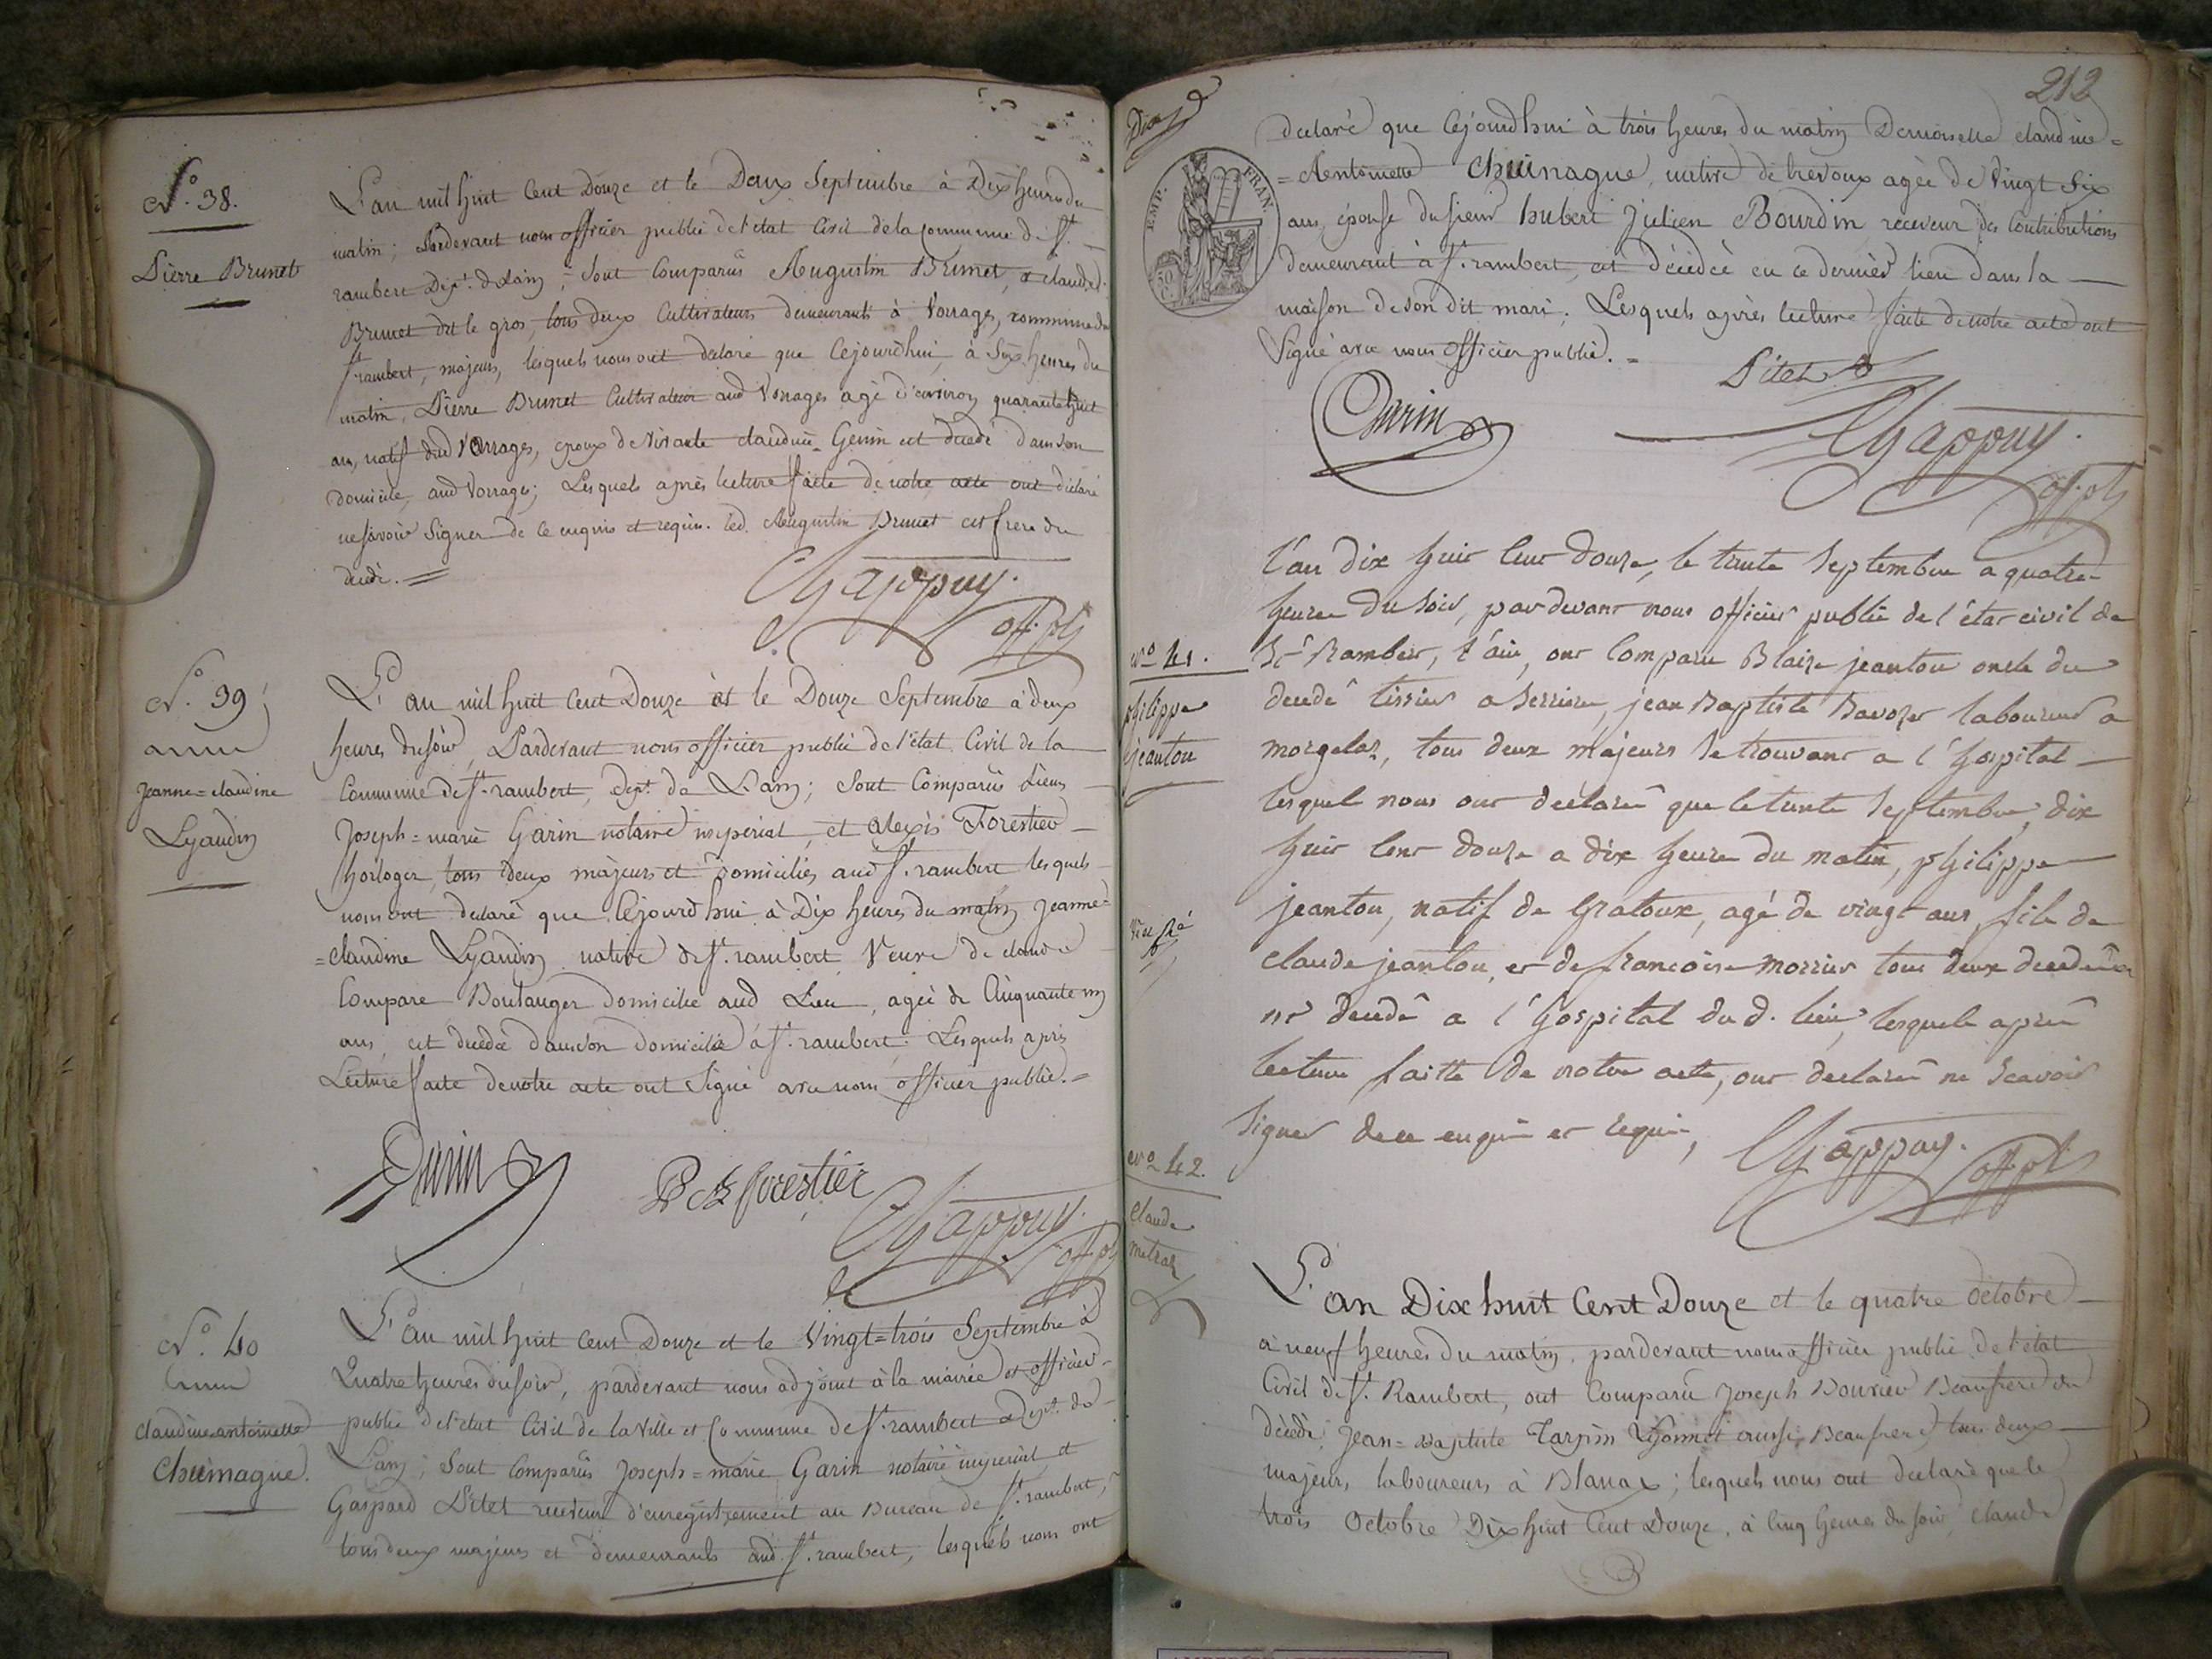 N.° 38.
Pierre Brunet
L'an mil huit Cent Douze et le Deux Septembre à Dix heures du
matin; Pardevant nous officier public de l'état Civil de la Commune de St.
rambert Dept. de Lain; Sont Comparûs Augustin Brunet, & claude
Brunet dit le gros, tous deux Cultivateurs demeurants à Vorrages, commune de
St. rambert, majeurs, lesquels nous ont declaré que Cejourdhui, à Six heures du
matin, Pierre Brunet Cultivateur aud Vorrages agé d'environ quarante huit
ans, natif dud Vorrages, epoux de vivante claudine Genin est décedé dans son
domicile, aud Vorrages; Lesquels après lecture faite de notre acte ont déclaré
ne savoir Signer de ce enquis et requis. led. Augustin Brunet est frere du
decedé. =
Chappuy.
off. pb
N.° 39
Jeanne=claudine
Lyaudin
L'an mil huit Cent Douze et le Douze Septembre à deux
heures du soir, Pardevant nous officier public de l'état Civil de la
Commune de St. rambert, Dept. de L'ain; Sont Comparûs Sieurs
Joseph=marie Garin notaire imperial, et alexis Forestier
horloger, tous deux majeurs et domiciliés aud St. rambert lesquels
nous ont declaré que Cejourd'hui à Dix heures du matin Jeanne=
=claudine Lyaudin native de St. rambert Veuve de claude
Compare Boulanger domicilié aud Lieu, agée de Cinquante un
ans, est decedée dans son domicile à St. rambert. Lesquels après
Lecture faite de notre acte ont Signé avec nous officier public. =
Garin
forestier
Chappuy.
off pb
N.° 40
claudine antoinette
Chuinague.
L'an mil huit Cent Douze et le Vingt=trois Septembre à
Quatre heures du soir, pardevant nous adjoint à la mairie et officier
public de l'état Civil de la Ville et Commune de St. rambert Dept. de
L'ain; Sont Comparûs Joseph=marie Garin notaire imperial et
Gaspard Pitet receveur d'enregistrement au Bureau de St. rambert,
tous deux majeurs et demeurants aud. St. rambert, lesquels nous ont
212
EMP.
FRAN.
declaré que Cejourdhui à trois heures du matin Demoiselle claudine=
=Aentoinette Chuinague, native de trevoux agée de Vingt Six
ans, épouse du sieur hubert Julien Bourdin receveur des Contributions
demeurant à St. rambert, est décedée en ce dernier lieu dans la
maison de son dit mari; Lesquels après lecture faite de notre acte ont
Signé avec nous officier public. =
Pitet
Garin
Chappuy.
off. pb
n° 41.
philippe
jeantou
l'an dix huit cent douze, le trente Septembre a quatre
heure du soir, pardevant nous officier public de l'état civil de
St Rambert, l'ain, ont comparu Blaize jeantou oncle du
decedé tissier a Serriere, jean Baptiste Savozer laboureur a
morgelaz, tous deux majeurs se trouvant a l'hospital
lesquel nous ont declaré que le trente Septembre dix
huit cent douze a dix heure du matin, philippe
jeantou, natif de Gratoux, agé de vingt ans, fils de
claude jeantou, et de francoise morrier tous deux decedés
est decedé a l'hospital du d. lieu, lesquels après
lecture faitte de notre acte, ont declaré ne scavoir
signer de ce enquis et requis,
Chappuy.
off. pb
n° 42.
claude
metral
L'an Dix huit Cent Douze et le quatre Octobre
à neuf heures du matin, pardevant nous officier public de l'état
Civil de St. Rambert, ont Comparû Joseph Bouvier Beaufrere du
décédé, Jean=Baptiste Tarpin Lyonnet aussi Beaufrere, tous deux
majeurs, laboureurs à Blanax; lesquels nous ont declaré que le
trois Octobre Dix huit Cent Douze, à Cinq heures du soir, claude